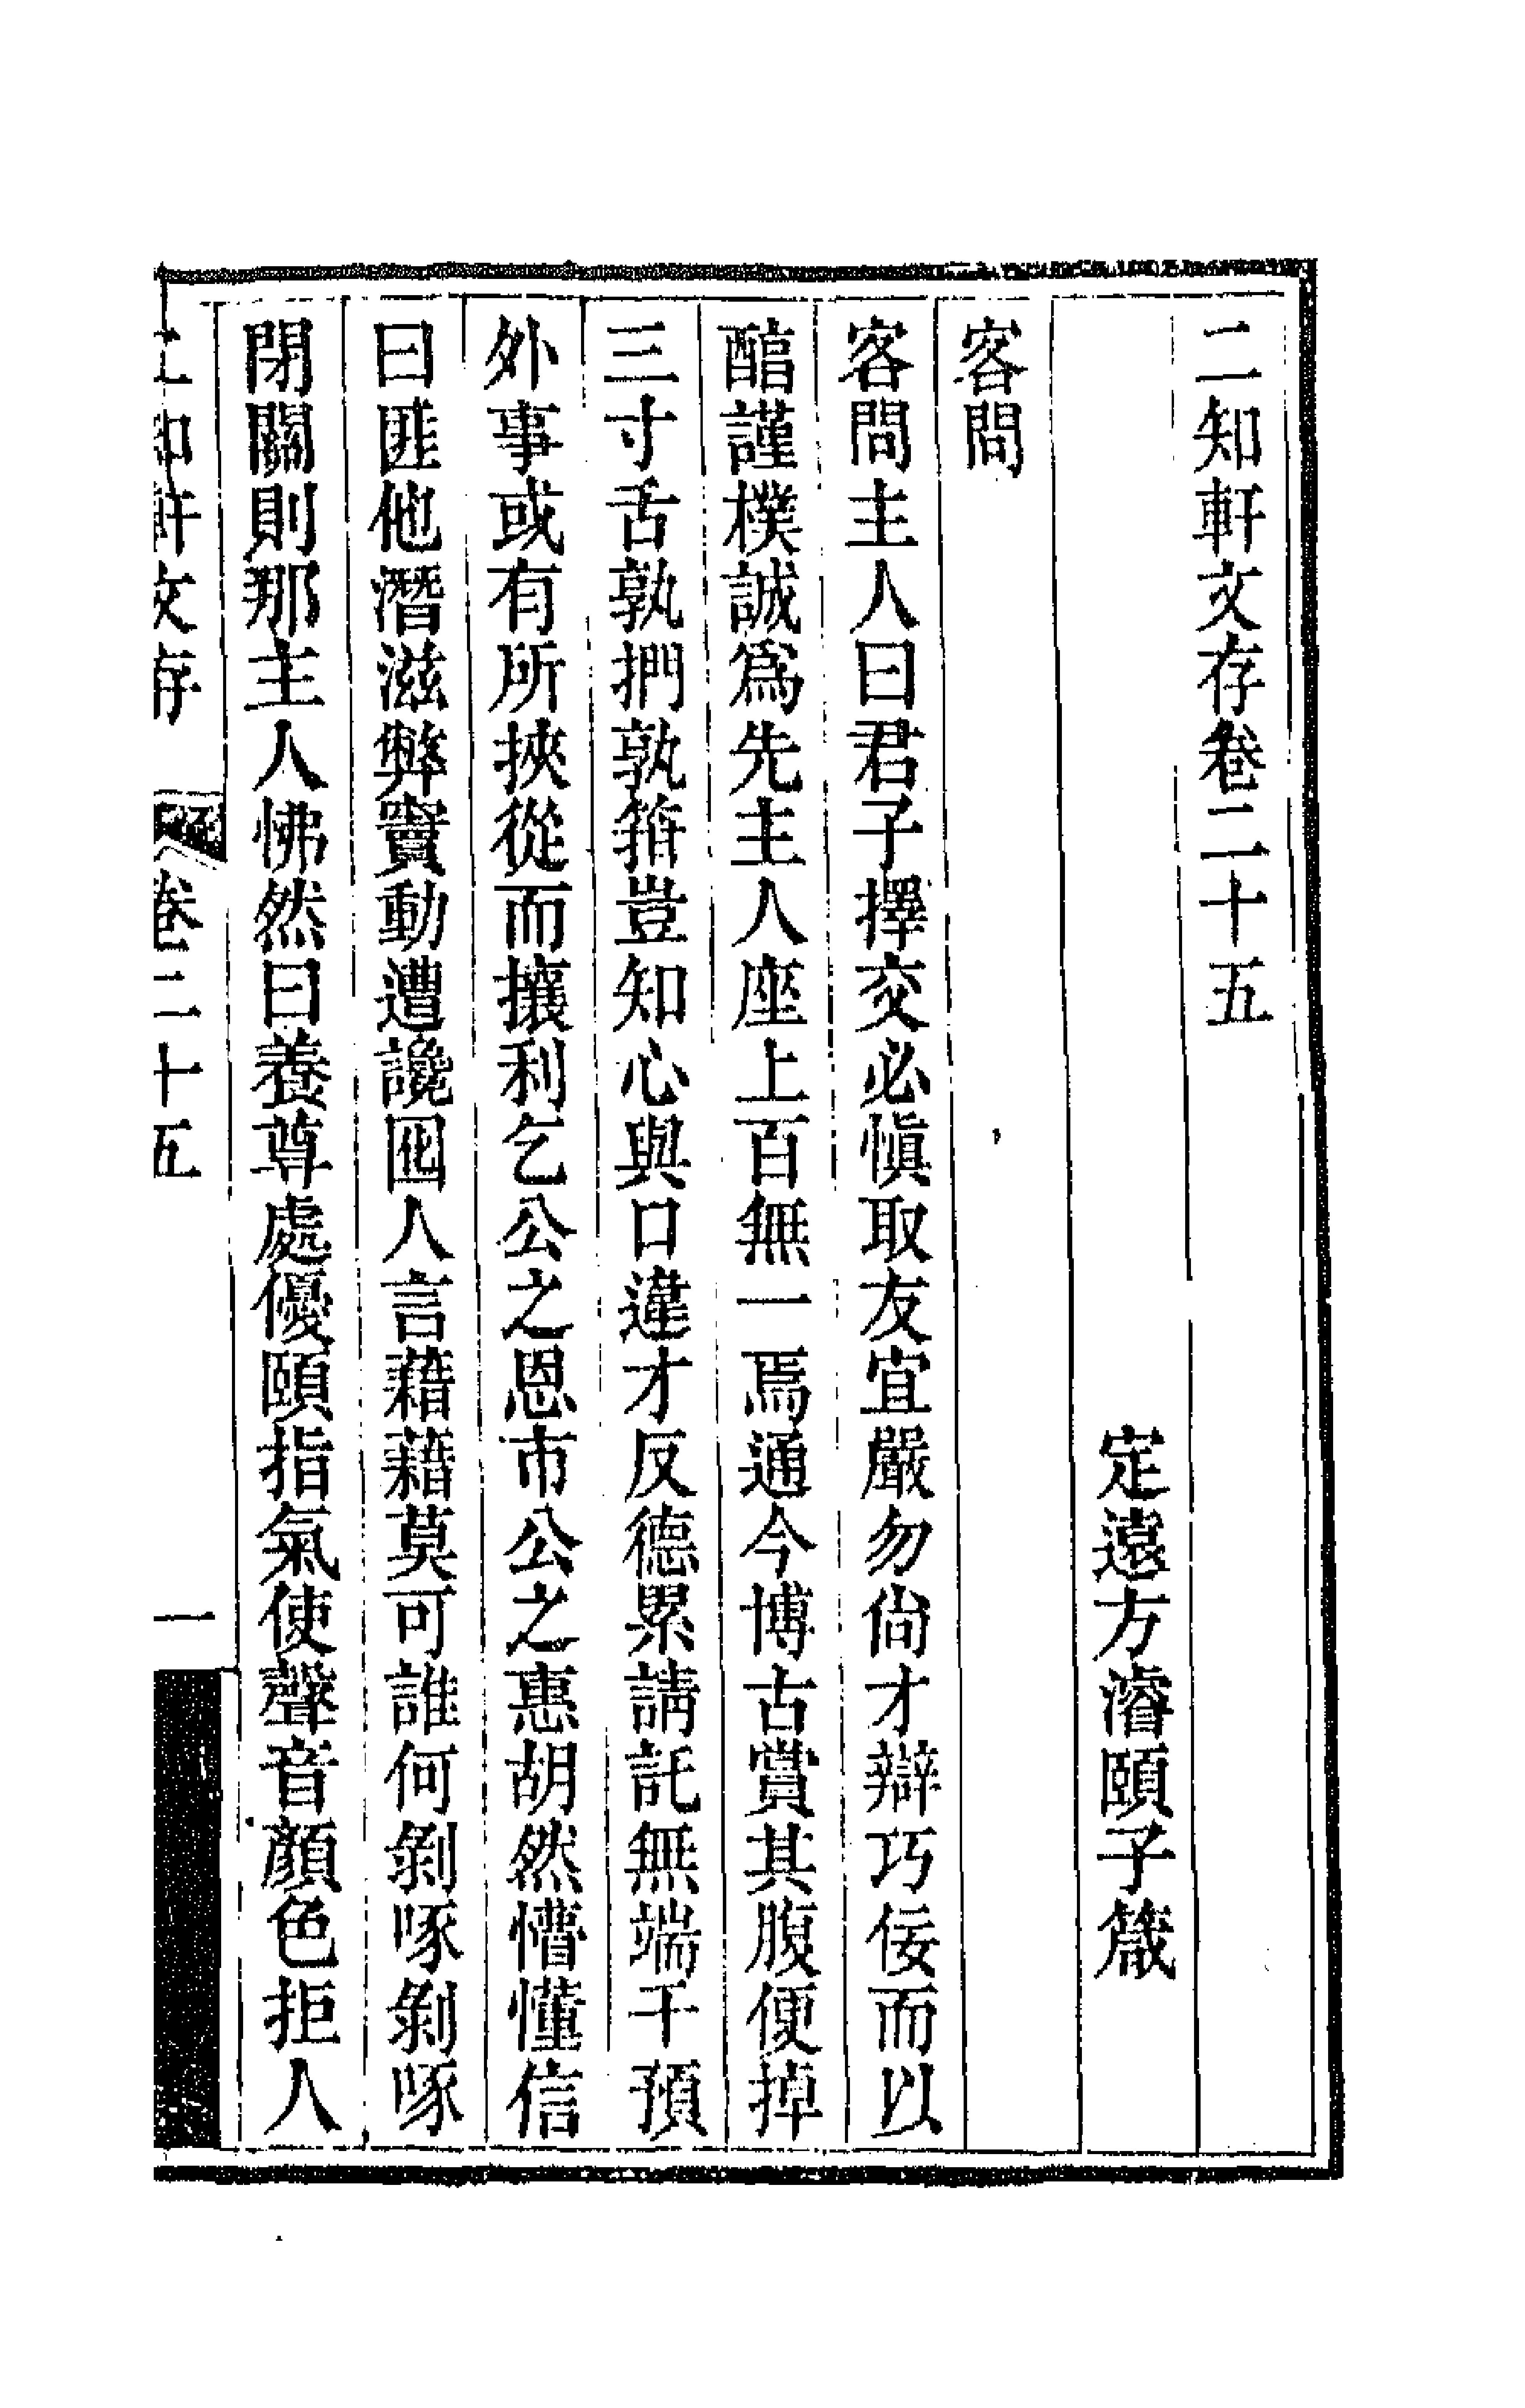 二知軒文存卷二十五
定遠方濬頤子箴
客問
客問主人曰君子擇交必愼取友宜嚴勿尙才辯巧佞而以
醕謹樸誠爲先主人座上百無一焉通今博古賞其腹便掉
三寸舌孰捫孰箝豈知心與口違才反德累請託無端干預
外事或有所挾從而攘利乞公之恩市公之惠胡然懵懂信
曰匪他潛滋弊竇動遭讒囮人言藉藉莫可誰何剝啄剝啄
閉關則那主人怫然曰養尊處優頤指氣使聲音顏色拒人
二知軒文存 卷二十五 一